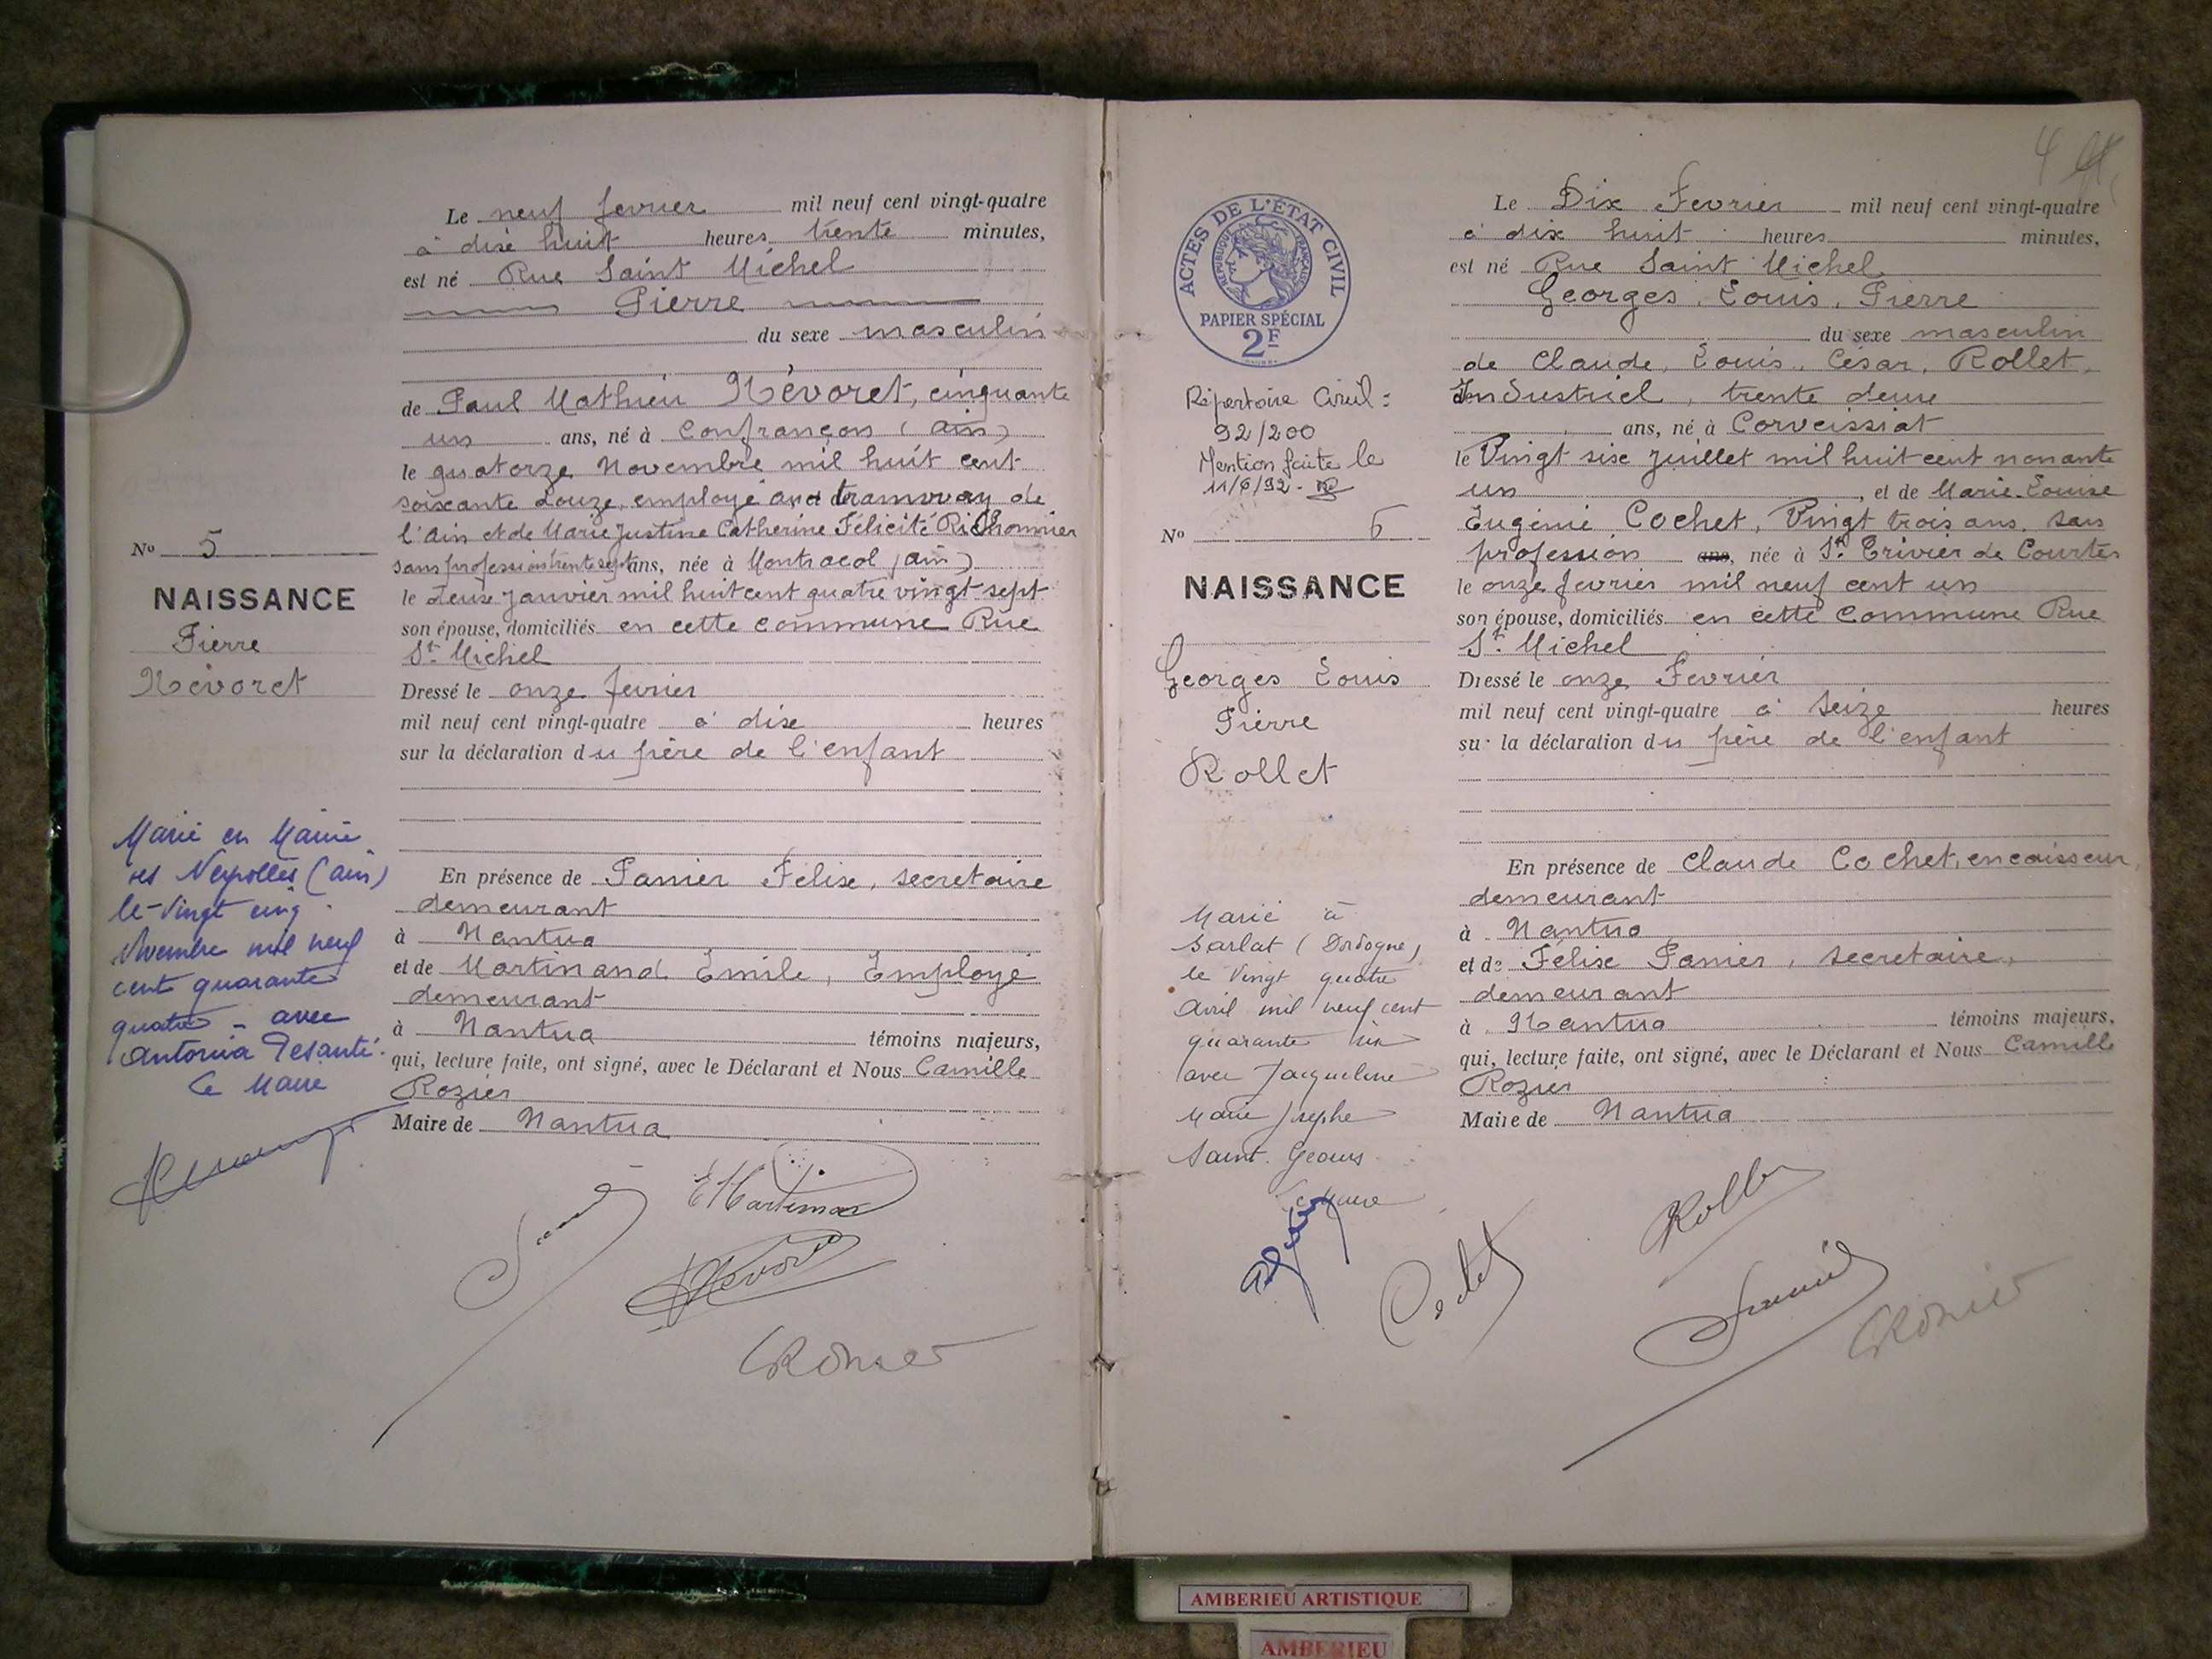 Le neuf fevrier mil neuf cent vingt-quatre
à dixe huit heures trente minutes,
est né Rue Saint Michel
Pierre
du sexe masculin
de Paul Mathieu Névoret, cinquante
un ans, né à Confrançon (ain)
le quatorze Novembre mil huit cent
soixante douze, employé tramway de
l'Ain et de Marie Justine Catherine Félicité Richonnier
sans profession trente sept ans, née à Montracol (ain)
le deux Janvier mil huit cent quatre vingt sept
son épouse, domiciliés en cette commune Rue
St. Michel
Dressé le onze fevrier
mil neuf cent vingt-quatre à dixe heures
sur la déclaration du père de l'enfant
En présence de Panier Félixe, secretaire
demeurant
à Nantua
et de Martinand Emile, Employé
demeurant
à Nantua témoins majeurs,
qui, lecture faite, ont signé, avec le Déclarant et Nous Camille
Rozier
Maire de Nantua
No 5
NAISSANCE
Pierre
Névoret
Marié en Mairie
Neyrolles (ain)
le Vingt cinq
Novembre mil neuf
cent quarante
quatre - avec
Antonia Pesanti.
Le Maire
E Martinan
Névoret
CRozier
4
ACTES DE L'ÉTAT CIVIL
RÉPUBLIQUE FRANÇAISE
PAPIER SPÉCIAL
2F
Répertoire Civil:
92/200
Mention faite le
11/6/92
No 6
NAISSANCE
Georges Louis
Pierre
Rollet
Marié à
Sarlat (Dordogne)
le Vingt quatre
Avril mil neuf cent
quarante six
avec Jacqueline
Marie Josephe
Saint Geours
Le Maire
Le Dix Fevrier mil neuf cent vingt-quatre
à dix huit heures minutes,
est né Rue Saint Michel
Georges, Louis, Pierre
du sexe masculin
de Claude, Louis, César, Rollet,
Industriel, trente deux
ans, né à Corveissiat
le Vingt sixe Juillet mil huit cent nonante
un, et de Marie-Louise
Eugénie Cochet, Vingt trois ans, sans
profession ans, née à St. Trivier de Courtes
le onze fevrier mil neuf cent un
son épouse, domiciliés en cette Commune Rue
St. Michel
Dressé le onze Fevrier
mil neuf cent vingt-quatre à seize heures
sur la déclaration du père de l'enfant
En présence de Claude Cochet, encaisseur,
demeurant
à Nantua
et de Félixe Panier, secretaire,
demeurant
à Nantua témoins majeurs,
qui, lecture faite, ont signé, avec le Déclarant et Nous Camille
Rozier
Maire de Nantua
Rollet
Cochet
Panier
CRozier
AMBERIEU ARTISTIQUE
AMBERIEU